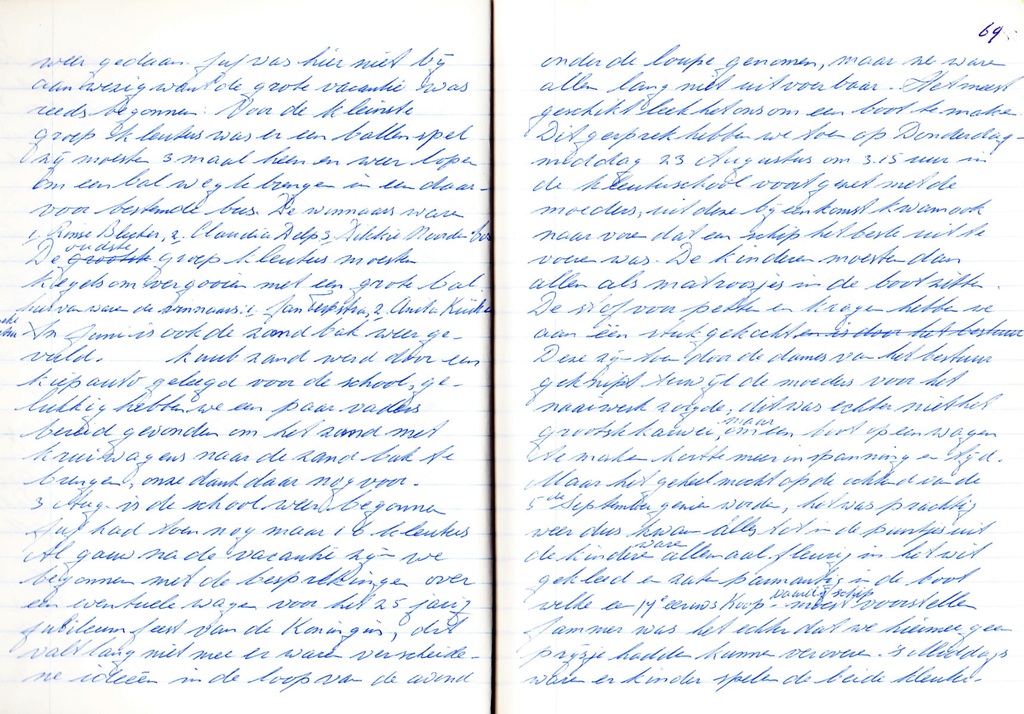 weer gedaan. Juf was hier niet bij
aanwezig want de grote vacantie was
reeds begonnen. Voor de kleinste
groep kleuters was er een ballenspel
zij moesten 3 maal heen en weer lopen
om een bal weg te brengen in een daar-
voor bestemde bus. De winnaars waren
2. Claudia 3.
De oudste groep kleuters moesten
kegels omvergooien met een grote bal
hiervan waren de winnaars: 1. Jan 2. Anita
In Juni is ook de zandbak weer ge-
vuld. kuub zand werd door een
kiepauto gelegd voor de school, ge-
lukkig hebben we een paar vaders
bereid gevonden om het zand met
kruiwagens naar de zandbak te
brengen, onze dank daar nog voor.
3 Aug. is de school weer begonnen
Juf had toen nog maar 18 kleuters
Al gauw na de vacantie zijn we
begonnen met de besprekingen over
een eventuele wagen voor het 25 jarig
Jubileumfeest van de Koningin, dit
valt lang niet mee er waren verscheide-
ne ideeën in de loop van de avond
69.
onder de loupe genomen, maar ze waren
allen lang niet uitvoerbaar. Het meest
geschikt leek het ons om een boot te maken
Dit gesprek hebben we toen op Donderdag-
middag 23 Augustus om 3.15 uur in
de kleuterschool voortgezet met de
moeders, uit deze bijeenkomst kwam ook
naar voren dat een schip het beste uit te
voeren was. De kinderen moesten dan
allen als matroosjes in de boot zitten.
De stof voor petten en kragen hebben we
aan één stuk gekocht en is door het bestuur
Deze zijn toen door de dames van het bestuur
geknipt terwijl de moeders voor het
naaiwerk zorgde, dit was echter niet het
grootste karwei, maar om een boot op een wagen
te maken kostte meer inspanning en tijd.
Maar het geheel mocht op de ochtend van de
5de September gezien worden, het was prachtig
weer dus kwam alles tot in de puntjes uit
de kinderen waren allemaal fleurig in het wit
gekleed en zaten parmantig in de boot
welke een 17e eeuws Koop-vaardijschip moest voorstellen
Jammer was het echter dat we hiermee geen
prijsje hadden kunnen veroveren. 's Middags
waren er kinderspelen de beide kleuter-